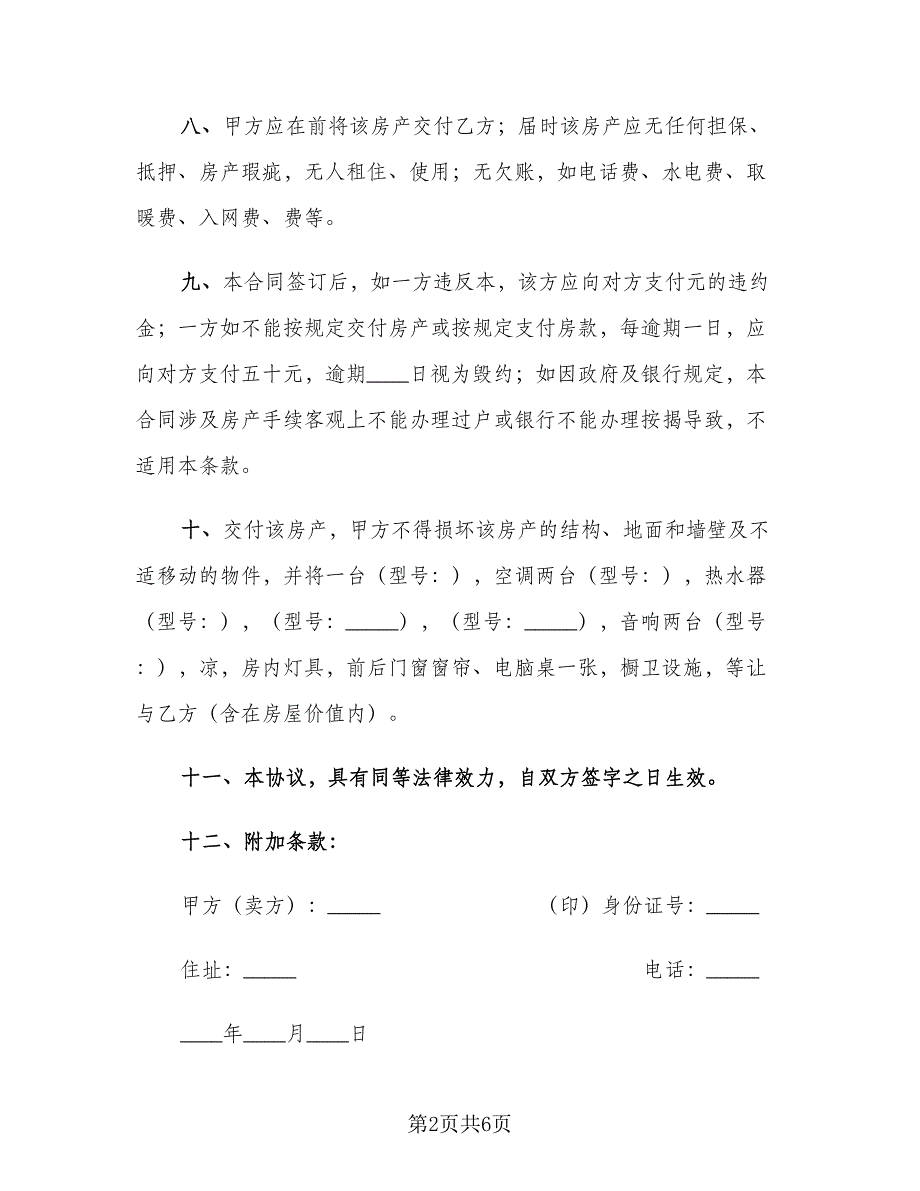 八、甲方应在前将该房产交付乙方；届时该房产应无任何担保、
抵押、房产瑕疵，无人租住、使用；无欠账，如电话费、水电费、取
暖费、入网费、费等。
九、本合同签订后，如一方违反本，该方应向对方支付元的违约
金；一方如不能按规定交付房产或按规定支付房款，每逾期一日，应
向对方支付五十元，逾期____日视为毁约；如因政府及银行规定，本
合同涉及房产手续客观上不能办理过户或银行不能办理按揭导致，不
适用本条款。
十、交付该房产，甲方不得损坏该房产的结构、地面和墙壁及不
适移动的物件，并将一台（型号：），空调两台（型号：），热水器
（型号：），（型号：_____），（型号：_____），音响两台（型号
：），凉，房内灯具，前后门窗窗帘、电脑桌一张，橱卫设施，等让
与乙方（含在房屋价值内）。
十一、本协议，具有同等法律效力，自双方签字之日生效。
十二、附加条款：
甲方（卖方）：_____ （印）身份证号：_____
住址：_____ 电话：_____
____年____月____日
第2页共6页